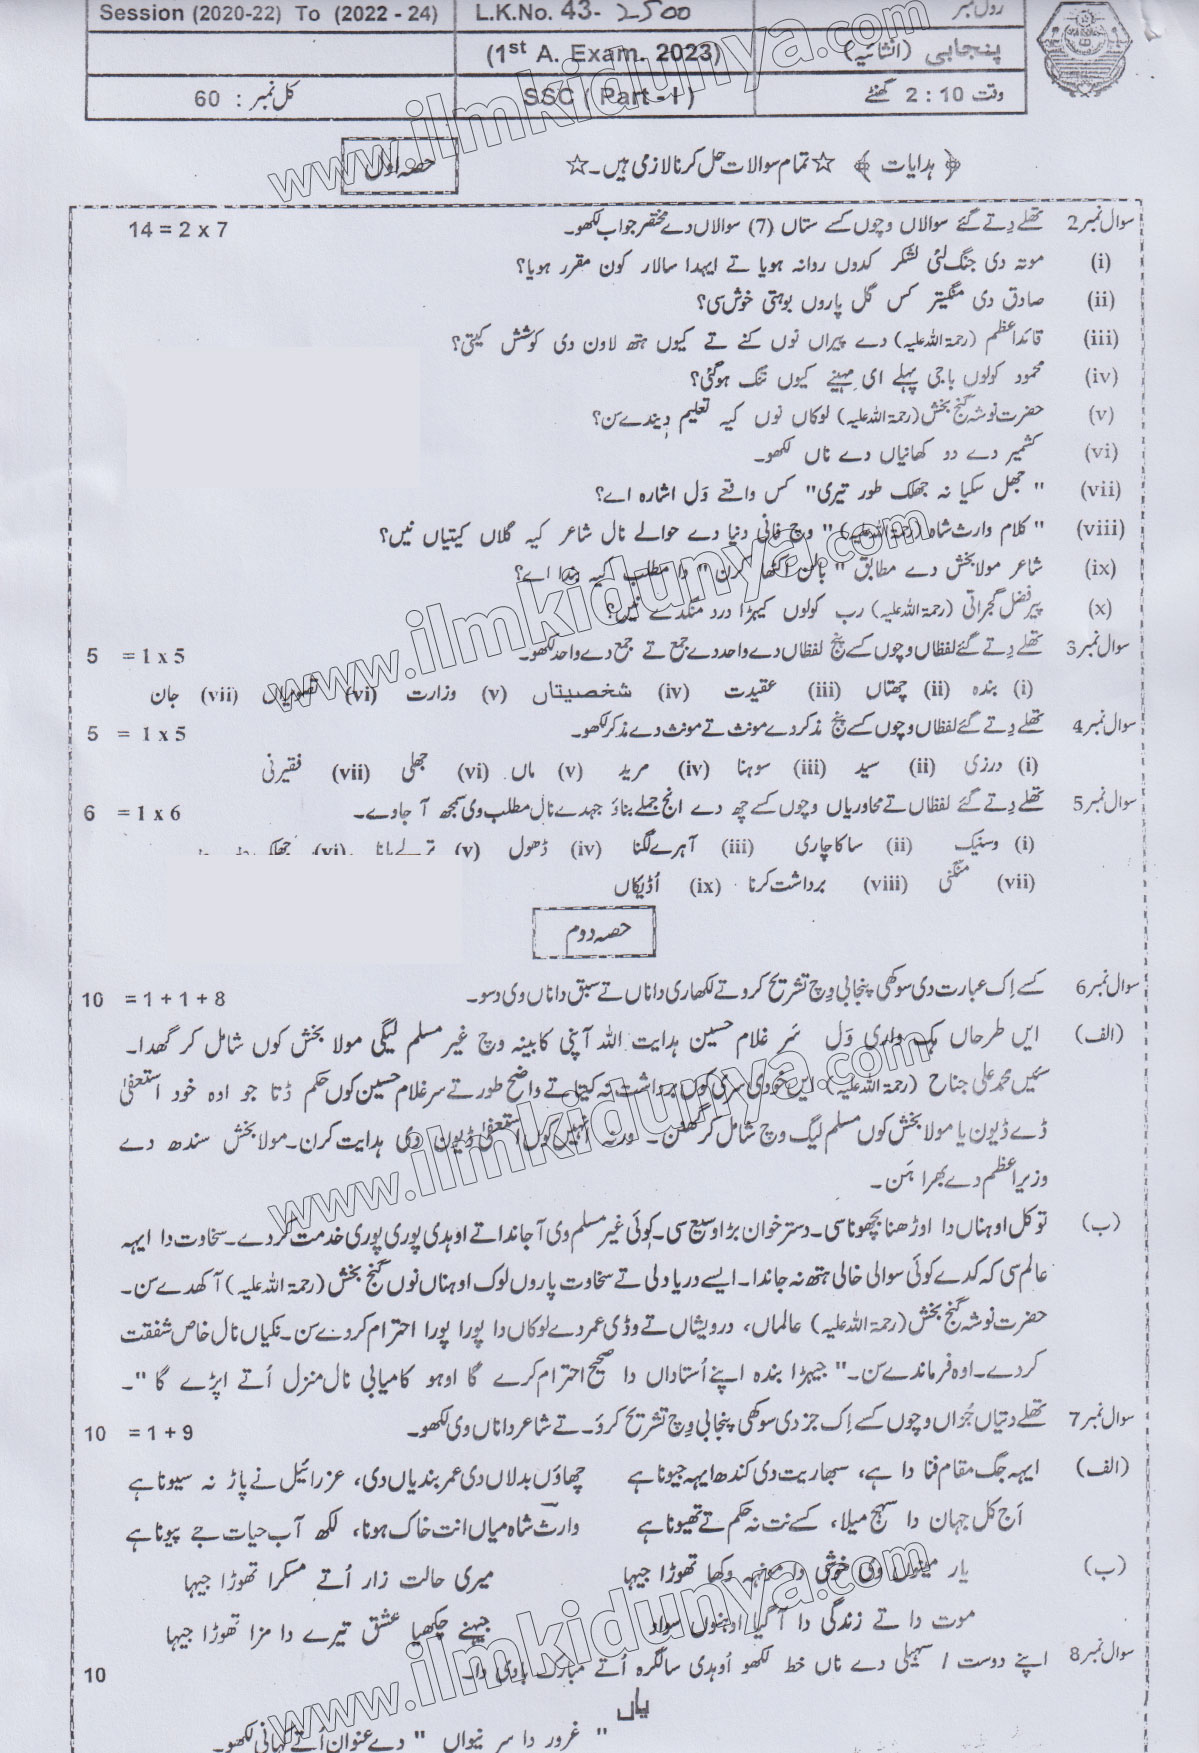 Session (2020-22) To (2022 - 24) L.K.No. 43- 2500 رول نمبر
(1st A. Exam. 2023) پنجابی (انشائیہ)
کل نمبر : 60 SSC ( Part - I ) وقت 2 : 10 گھنٹے
﴿ ہدایات ﴾ ☆ تمام سوالات حل کرنا لازمی ہیں۔ ☆ حصہ اوّل
سوال نمبر 2 تھلے دِتے گئے سوالاں وچوں کسے ستاں (7) سوالاں دے مختصر جواب لکھو۔ 14 = 2 x 7
(i) موتہ دی جنگ لئی لشکر کدوں روانہ ہویا تے ایہدا سالار کون مقرر ہویا؟
(ii) صادق دی منگیتر کس گل پاروں بوہتی خوش سی؟
(iii) قائداعظم (رحمۃ اللہ علیہ) دے پیراں نوں کنے تے کیوں ہتھ لاون دی کوشش کیتی؟
(iv) محمود کولوں باجی پہلے ای مہینے کیوں تنگ ہوگئی؟
(v) حضرت نوشہ گنج بخش (رحمۃ اللہ علیہ) لوکاں نوں کیہ تعلیم دیندے سن؟
(vi) کشمیر دے دو کھانیاں دے ناں لکھو۔
(vii) " جھل سکیا نہ جھلک طور تیری" کس واقعے وَل اشارہ اے؟
(viii) " کلام وارث شاہ (رحمۃ اللہ علیہ) " وچ فانی دنیا دے حوالے نال شاعر کیہ گلاں کیتیاں نیں؟
(ix) شاعر مولا بخش دے مطابق " بالن اکٹھا کرن " دا مطلب کیہ بندا اے؟
(x) پیر فضل گجراتی (رحمۃ اللہ علیہ) رب کولوں کیہڑا درد منگدے نیں؟
سوال نمبر 3 تھلے دِتے گئے لفظاں وچوں کسے پنج لفظاں دے واحد دے جمع تے جمع دے واحد لکھو۔ 5 = 1 x 5
(i) بندہ (ii) چھتاں (iii) عقیدت (iv) شخصیتاں (v) وزارت (vi) تصویراں (vii) جان
سوال نمبر 4 تھلے دِتے گئے لفظاں وچوں کسے پنج مذکر دے مونث تے مونث دے مذکر لکھو۔ 5 = 1 x 5
(i) درزی (ii) سید (iii) سوہنا (iv) مرید (v) ماں (vi) جھلی (vii) فقیرنی
سوال نمبر 5 تھلے دِتے گئے لفظاں تے محاوریاں وچوں کسے چھ دے انج جملے بناؤ جہدے نال مطلب وی سمجھ آ جاوے۔ 6 = 1 x 6
(i) وسنیک (ii) ساکاچاری (iii) آہرے لگنا (iv) ڈھول (v) ترلے پانا (vi)
(vii) منگنی (viii) برداشت کرنا (ix) اُڈیکاں
حصہ دوم
سوال نمبر 6 کسے اِک عبارت دی سوکھی پنجابی وِچ تشریح کرو تے لکھاری دا ناں تے سبق دا ناں وی دسو۔ 10 = 1 + 1 + 8
(الف) ایں طرحاں ہک واری وَل سَر غلام حسین ہدایت اللہ آپنی کابینہ وچ غیر مسلم لیگی مولا بخش کوں شامل کر گھدا۔
سئیں محمد علی جناح (رحمۃ اللہ علیہ) ایں خودی سری کوں برداشت نہ کیتا تے واضح طور تے سر غلام حسین کوں حکم ڈتا جو اوہ خود استعفیٰ
ڈے ڈیون یا مولا بخش کوں مسلم لیگ وچ شامل کر گھنن۔ ورنہ انہیں کوں استعفیٰ ڈیون دی ہدایت کرن۔ مولا بخش سندھ دے
وزیراعظم دے بھرا ہَن۔
(ب) توکل اوہناں دا اوڑھنا بچھونا سی۔ دسترخوان بڑا وسیع سی۔ کوئی غیر مسلم وی آجاندا تے اوہدی پوری پوری خدمت کردے۔ سخاوت دا ایہہ
عالم سی کہ کدے کوئی سوالی خالی ہتھ نہ جاندا۔ ایسے دریا دلی تے سخاوت پاروں لوک اوہناں نوں گنج بخش (رحمۃ اللہ علیہ) آکھدے سن۔
حضرت نوشہ گنج بخش (رحمۃ اللہ علیہ) عالماں، درویشاں تے وڈی عمر دے لوکاں دا پورا پورا احترام کردے سن۔ نکیاں نال خاص شفقت
کردے۔ اوہ فرماندے سن۔ " جیہڑا بندہ اپنے اُستاداں دا صحیح احترام کرے گا اوہو کامیابی نال منزل اُتے اپڑے گا "۔
سوال نمبر 7 تھلے دتیاں جُزاں وچوں کسے اِک جز دی سوکھی پنجابی وچ تشریح کرؤ۔ تے شاعر دا ناں وی لکھو۔ 10 = 1 + 9
(الف) ایہہ جگ مقام فنا دا ہے، سبھا ریت دی کندھ ایہہ جیونا ہے چھاؤں بدلاں دی عمر بندیاں دی، عزرائیل نے پاڑ نہ سیونا ہے
اَج کل جہان دا سہج میلا، کسے نت نہ حکم تے تھیونا ہے وارث شاہ میاں انت خاک ہونا، لکھ آب حیات جے پیونا ہے
(ب) یار مینوں وی خوشی دا مونہہ وکھا تھوڑا جیہا میری حالت زار اُتے مسکرا تھوڑا جیہا
موت دا تے زندگی دا آ گیا اوہنوں سواد جیہنے چکھیا عشق تیرے دا مزا تھوڑا جیہا
سوال نمبر 8 اپنے دوست / سہیلی دے ناں خط لکھو اُوہدی سالگرہ اُتے مبارک بادی دا۔ 10
یاں
" غرور دا سر نیواں " دے عنوان اُتے کہانی لکھو۔
www.ilmkidunya.com
www.ilmkidunya.com
www.ilmkidunya.com
www.ilmkidunya.com